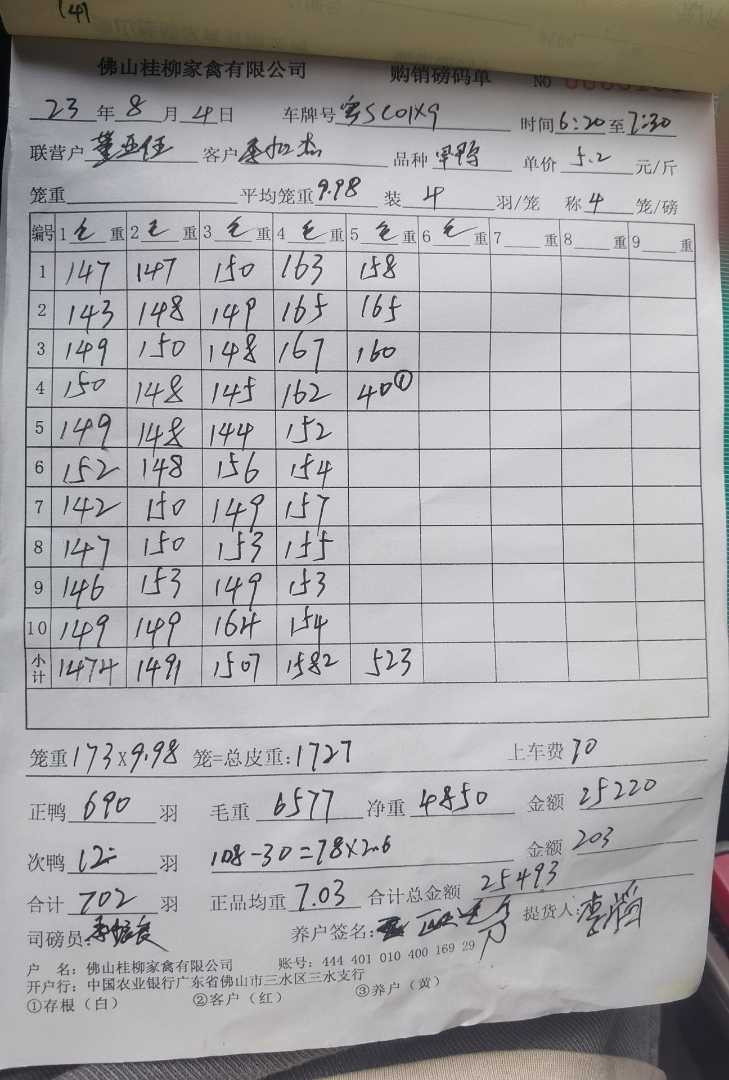 (4)
佛山桂柳家禽有限公司 购销磅码单 NO
23 年 8 月 4 日 车牌号 粤SC01X9 时间 6:20 至 7:30
联营户 董亚伍 客户 品种 单价 5.2 元/斤
笼重 平均笼重 9.98 装 4 羽/笼 称 4 笼/磅
编号 1 毛 重 2 毛 重 3 毛 重 4 毛 重 5 毛 重 6 毛 重 7 重 8 重 9 重
1 147 147 150 163 158
2 143 148 149 165 165
3 149 150 148 167 160
4 150 148 145 162 40①
5 149 148 144 152
6 152 148 156 154
7 142 150 149 157
8 147 150 153 155
9 146 153 149 153
10 149 149 164 154
小计 1474 1491 1507 1582 523
笼重 173 X 9.98 笼=总皮重: 1727 上车费 70
正鸭 690 羽 毛重 6577 净重 4850 金额 25220
次鸭 12 羽 108-30=78X2.6 金额 203
合计 702 羽 正品均重 7.03 合计总金额 25493
司磅员: 养户签名: 提货人:
户 名: 佛山桂柳家禽有限公司 账号: 444 401 010 400 169 29
开户行: 中国农业银行广东省佛山市三水区三水支行
①存根(白) ②客户(红) ③养户(黄)